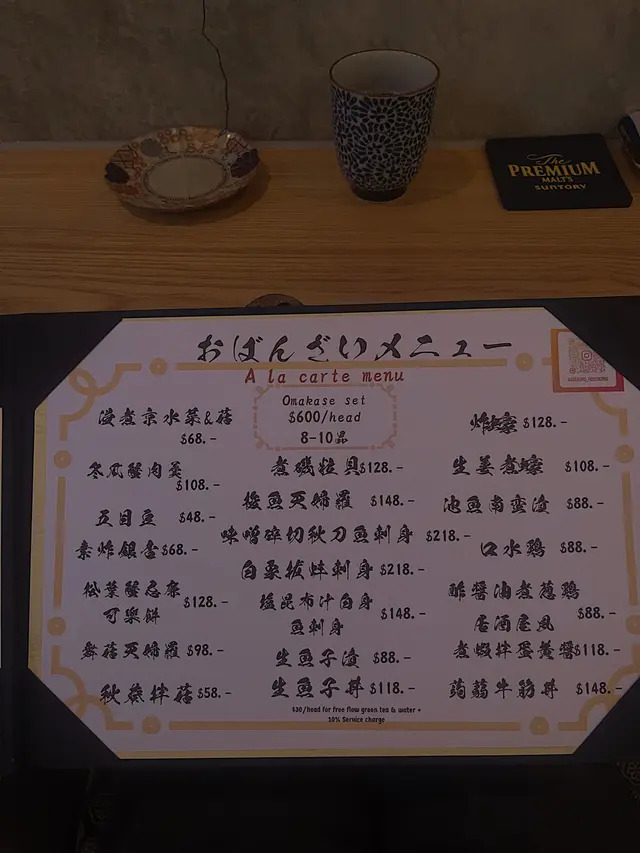 The
PREMIUM
MALT'S
SUNTORY
おばんざいメニュー
A la carte menu
Omakase set
$600/head
8-10品
浸煮京水菜&菇
$68.-
冬瓜蟹肉羹
$108.-
五目豆 $48.-
素炸銀杏 $68.-
松葉蟹忌廉
可樂餅 $128.-
舞菇天婦羅 $98.-
秋葵拌菇 $58.-
煮磯粒貝 $128.-
梭魚天婦羅 $148.-
味噌碎切秋刀魚刺身 $218.-
白象拔蚌刺身 $218.-
塩昆布汁白身
魚刺身 $148.-
生魚子漬 $88.-
生魚子丼 $118.-
炸蠔 $128.-
生姜煮蠔 $108.-
池魚南蛮漬 $88.-
口水鶏 $88.-
酢醤油煮葱鶏
居酒屋風 $88.-
煮蝦拌蛋黄醤 $118.-
蒟蒻牛筋丼 $148.-
$30/head for free flow green tea & water +
10% Service charge